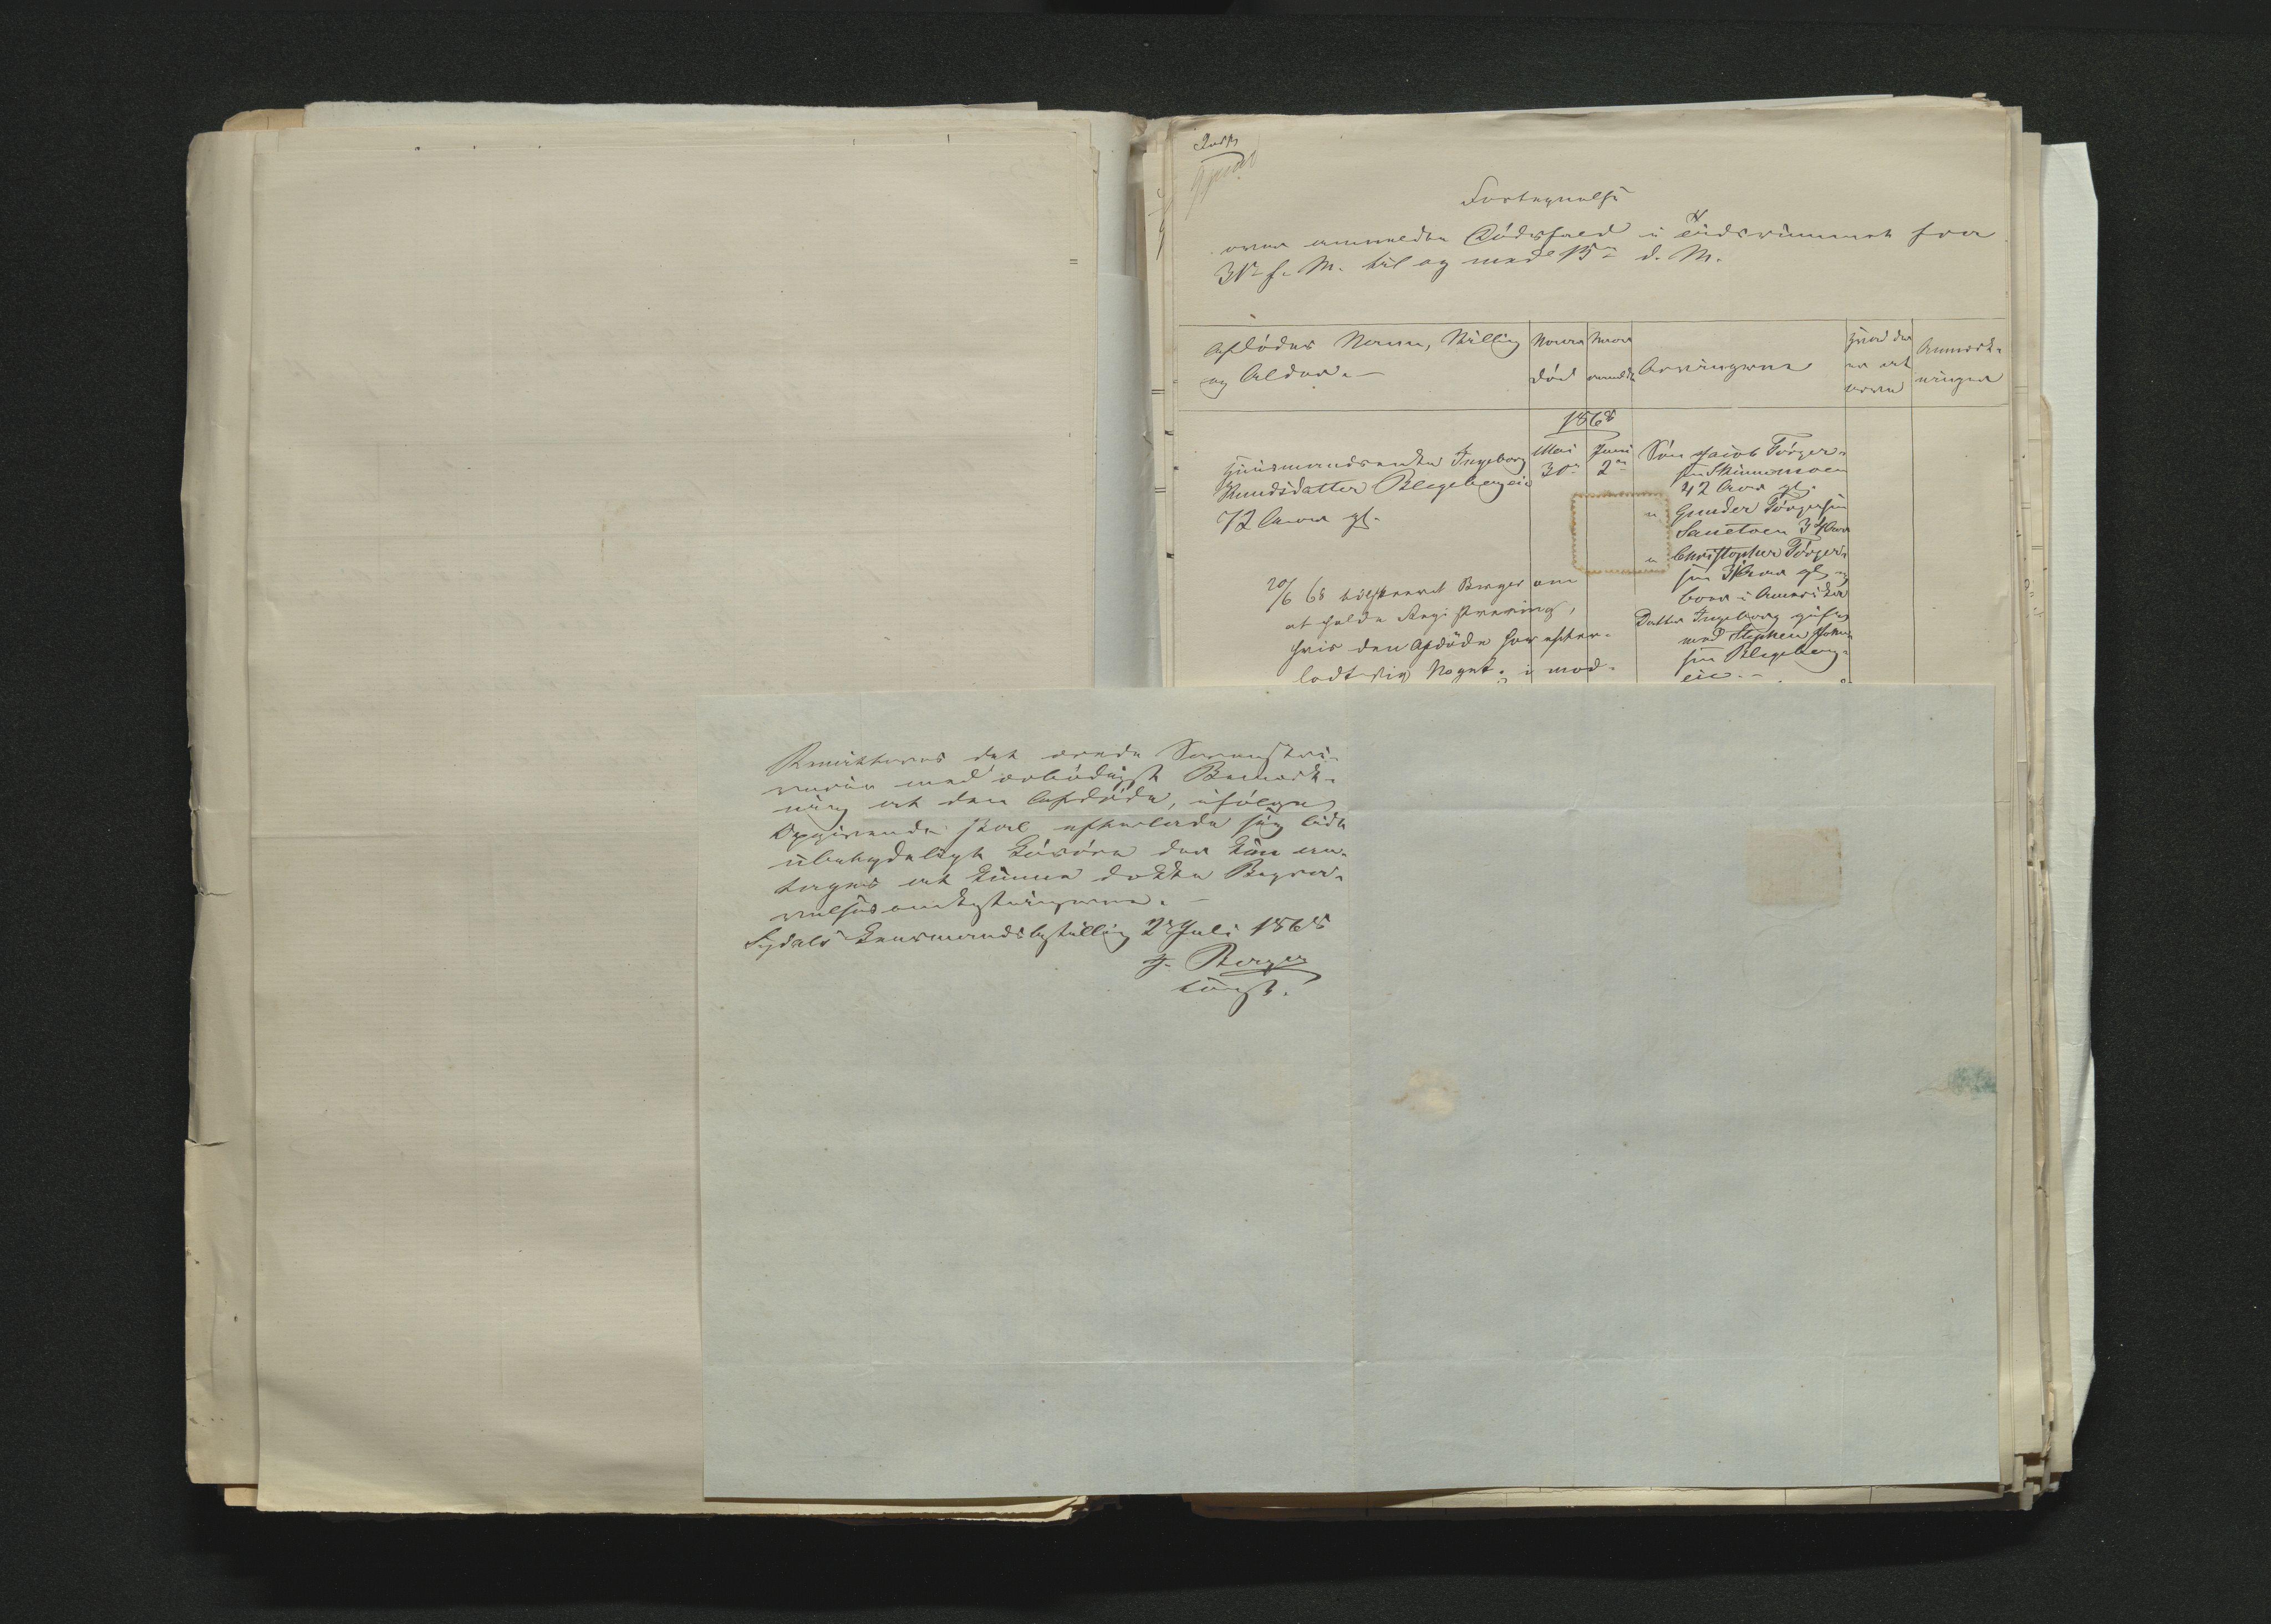 Fortegnelse
over anmeldte Dødsfald i Tidsrummet fra
31te f. M. til og med 15de d. M.
Afdødes Navn, Stilling
og Alder.
Naar
død
Naar
anmeldt
Arvingerne
Hvad der
er at
arve
Anmærk-
ninger
1868
Huusmandsenke Ingeborg
Knudsdatter Blegebergeie
72 Aar gl.
Mai
30te
Juni
2den
Søn Jacob Törger-
sen Skinnmoen
42 Aar gl.
" Gunder Törgersen
Sanetoen 34 Aar
" Christopher Törger-
sen 31 Aar gl. og
boer i Amerika
Datter Ingeborg gift
med Stephen
sen Blegeberg-
eie.
20/6 68 tilskrevet Berger om
at holde Registrering,
hvis den Afdøde har efter-
ladt sig Noget. i mod-
Remitteres det ærede Sorenskri-
veri med ærbødigst Bemærk-
ning at den Afdøde, ifølge
Opgivende skal efterlade sig lidt
ubetydeligt Løsøre der kan an-
tages at kunne dække Begra-
velsesomkostningerne.
Lensmandsbestilling 2den Juli 1868
Berger
konst.